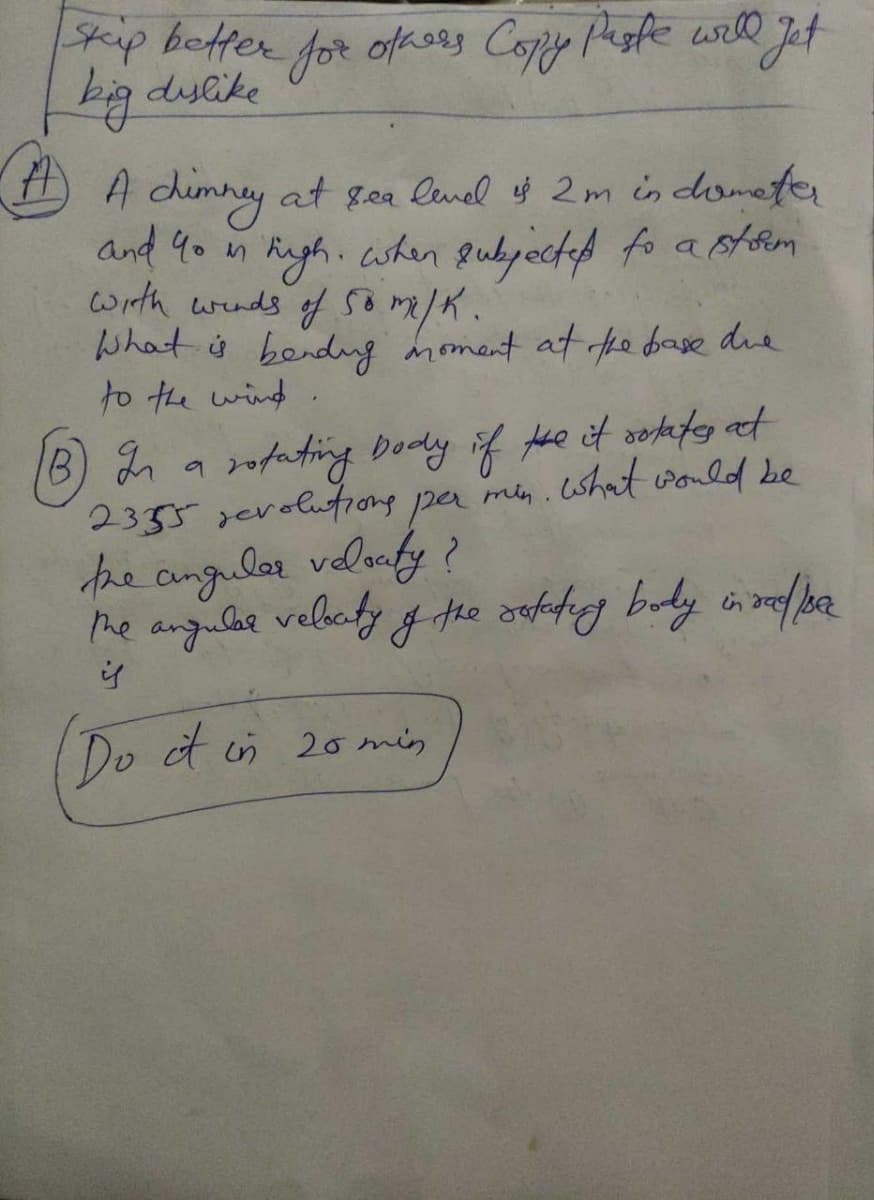 Skip better for others Copy Paste will get
big dislike
(A) A chimney at sea level is 2m in diameter
and 40 m high. when subjected to a storm
with winds of 50 mi/h.
What is bending moment at the base due
to the wind.
(B) In a rotating Body if it rotates at
2355 revolutions per min. What would be
the angular velocity?
The angular velocity of the rotating body in rad/sec
is
Do it in 20 min